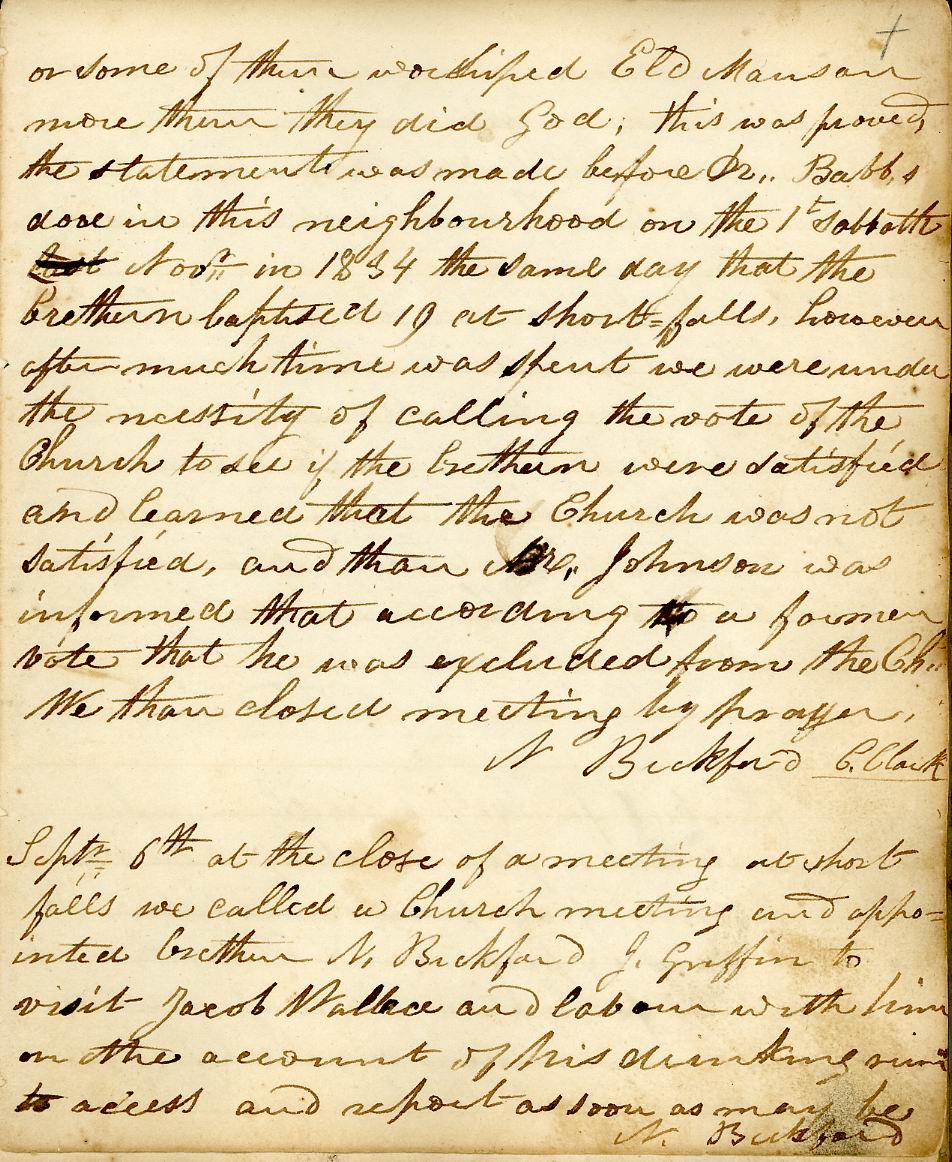 or some of them worshiped Eld Manson
more them they did God; this was proved,
the statement was made before Dr,, Babb,s
dore in this neighbourhood on the 1st Sabbath
Novr in 1834 the same day that the
brethern baptised 19 at short=falls, however
after much time was spent we were under
the necssity of calling the vote of the
Church to see if the brethern were satisfied
and learned that the Church was not
satisfied, and than Bre,, Johnson was
informed that according to a former
vote that he was excluded from the Ch..
We than closed meeting by prayer,
N Bickford C. Clark
Septr 6th at the close of a meeting at short
falls we called a Church meeting and appo=
inted brethern N, Bickford J. Griffin to
visit Jacob Wallace and labour with him
on the account of his drinking rum
to access and report as soon as may be
N. Bickford